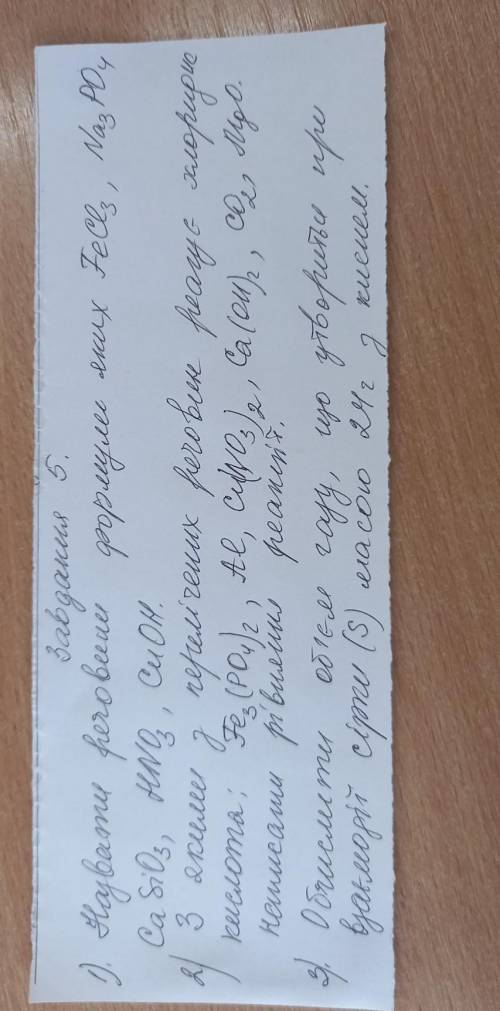 Завдання 5.
1). Назвати речовини формули яких FeCl₃, Na₃PO₄
CaSiO₃, HNO₃, CuOH.
2) З якими з перелічених речовин реагує хлоридна
кислота: Fe₃(PO₄)₂, Al, Cu(NO₃)₂, Ca(OH)₂, CO₂, MgO.
написати рівняння реакцій.
3). Обчислити об'єм газу, що утвориться при
взаємодії сірки (S) масою 24г з киснем.